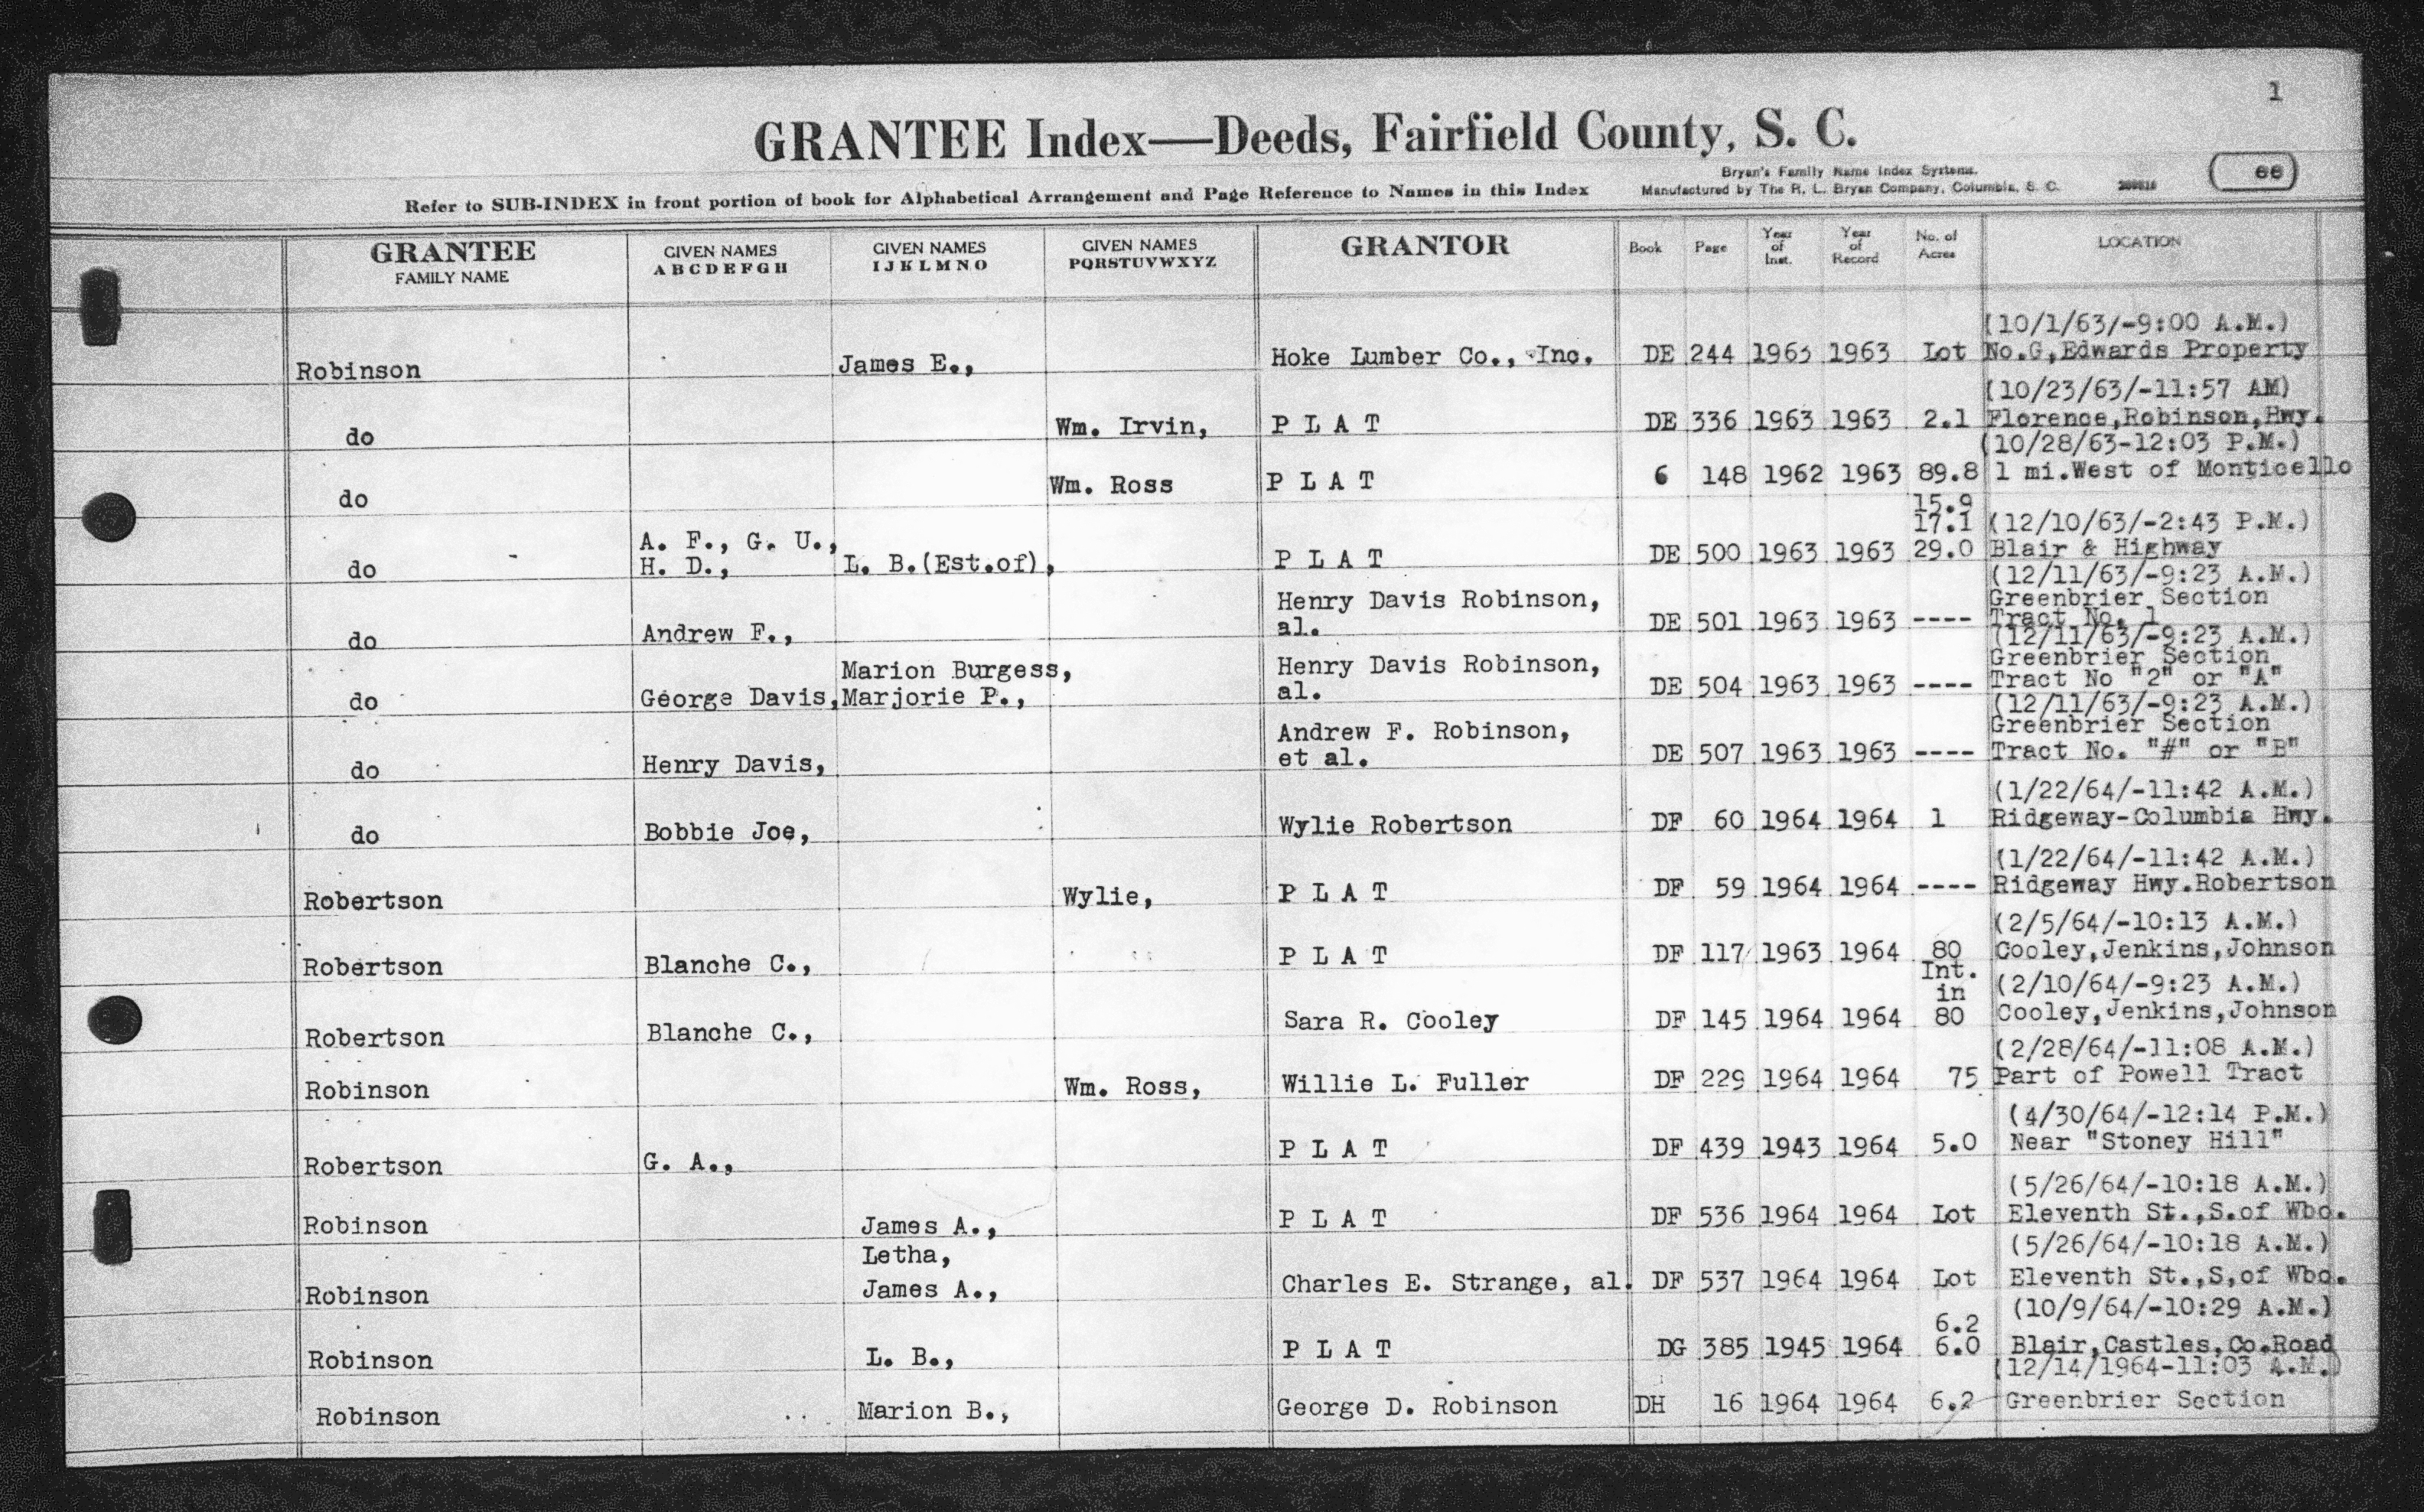 1
GRANTEE Index—Deeds, Fairfield County, S. C.
Bryan's Family Name Index Systems.
Refer to SUB-INDEX in front portion of book for Alphabetical Arrangement and Page Reference to Names in this Index Manufactured by The R. L. Bryan Company, Columbia, S. C.
ee
GRANTEE FAMILY NAME GIVEN NAMES ABCDEFGH GIVEN NAMES IJKLMNO GIVEN NAMES PQRSTUVWXYZ GRANTOR Book Page Year of Inst. Year of Record No. of Acres LOCATION
(10/1/63/-9:00 A.M.)
Robinson James E., Hoke Lumber Co., Inc. DE 244 1963 1963 Lot No.G,Edwards Property
(10/23/63/-11:57 AM)
do Wm. Irvin, P L A T DE 336 1963 1963 2.1 Florence,Robinson,Hwy.
(10/28/63-12:03 P.M.)
do Wm. Ross P L A T 6 148 1962 1963 89.8 1 mi.West of Monticello
15.9
A. F., G. U., 17.1 (12/10/63/-2:43 P.M.)
do H. D., L. B.(Est.of), P L A T DE 500 1963 1963 29.0 Blair & Highway
(12/11/63/-9:23 A.M.)
Henry Davis Robinson, Greenbrier Section
do Andrew F., al. DE 501 1963 1963 ---- Tract No. 1
(12/11/63/-9:23 A.M.)
Marion Burgess, Henry Davis Robinson, Greenbrier Section
do George Davis, Marjorie P., al. DE 504 1963 1963 ---- Tract No "2" or "A"
(12/11/63/-9:23 A.M.)
Andrew F. Robinson, Greenbrier Section
do Henry Davis, et al. DE 507 1963 1963 ---- Tract No. "#" or "B"
(1/22/64/-11:42 A.M.)
do Bobbie Joe, Wylie Robertson DF 60 1964 1964 1 Ridgeway-Columbia Hwy.
(1/22/64/-11:42 A.M.)
Robertson Wylie, P L A T DF 59 1964 1964 ---- Ridgeway Hwy.Robertson
(2/5/64/-10:13 A.M.)
Robertson Blanche C., P L A T DF 117 1963 1964 80 Cooley,Jenkins,Johnson
Int.
in (2/10/64/-9:23 A.M.)
Robertson Blanche C., Sara R. Cooley DF 145 1964 1964 80 Cooley,Jenkins,Johnson
(2/28/64/-11:08 A.M.)
Robinson Wm. Ross, Willie L. Fuller DF 229 1964 1964 75 Part of Powell Tract
(4/30/64/-12:14 P.M.)
Robertson G. A., P L A T DF 439 1943 1964 5.0 Near "Stoney Hill"
(5/26/64/-10:18 A.M.)
Robinson James A., P L A T DF 536 1964 1964 Lot Eleventh St.,S.of Wbo.
Letha, (5/26/64/-10:18 A.M.)
Robinson James A., Charles E. Strange, al. DF 537 1964 1964 Lot Eleventh St.,S,of Wbo.
6.2 (10/9/64/-10:29 A.M.)
Robinson L. B., P L A T DG 385 1945 1964 6.0 Blair,Castles,Co.Road
(12/14/1964-11:03 A.M.)
Robinson Marion B., George D. Robinson DH 16 1964 1964 6.2 Greenbrier Section